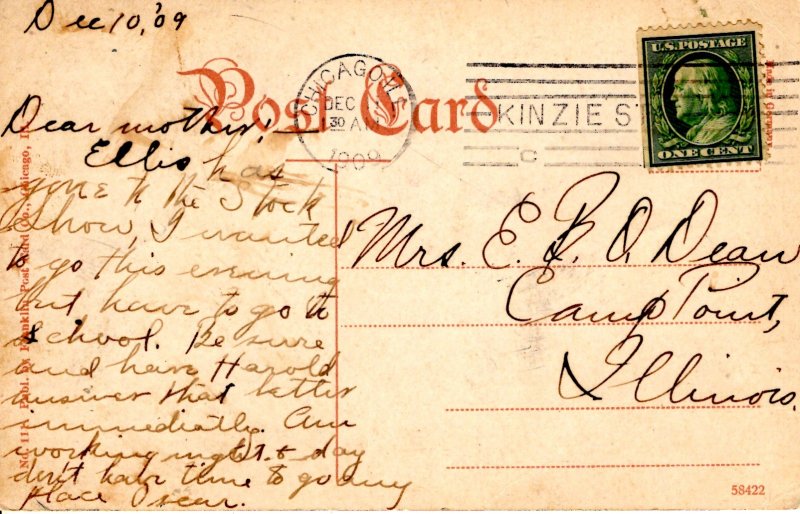 Dec 10, '09
Post Card
CHICAGO, ILL.
DEC
30 AM
1909
KINZIE ST
C
U.S. POSTAGE
ONE CENT
Dear mother;
Ellis has
gone to the Stock
Show, I wanted
to go this evening
but have to go to
school. Be sure
and have Harold
answer that letter
immediatly. Am
working night & day
don't have time to go any
place Oscar.
Mrs. E. B. O. Dean
Camp Point,
Illinois.
No. 111 Publ. by Franklin Post Card Co., Chicago, Ill.
Made in Germany
58422